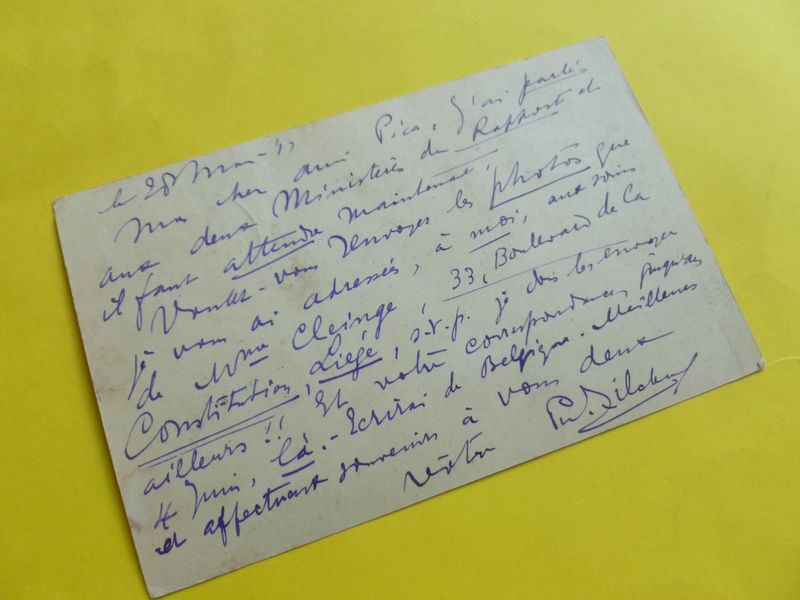 le 28 Mai -
Mon cher ami Pica, J'ai parlé
aux deux Ministères du Rapport et
il faut attendre maintenant,
Voulez-vous renvoyer les photos que
je vous ai adressés, à moi, aux soins
de Mme Cleinge, 33, Boulevard de la
Constitution, Liége, s.v.p. je dois les envoyer
ailleurs !! Et votre correspondance jusqu'au
4 Juin, là. - Ecrirai de Belgique. Meilleurs
et affectueux souvenirs à vous deux
Vôtre